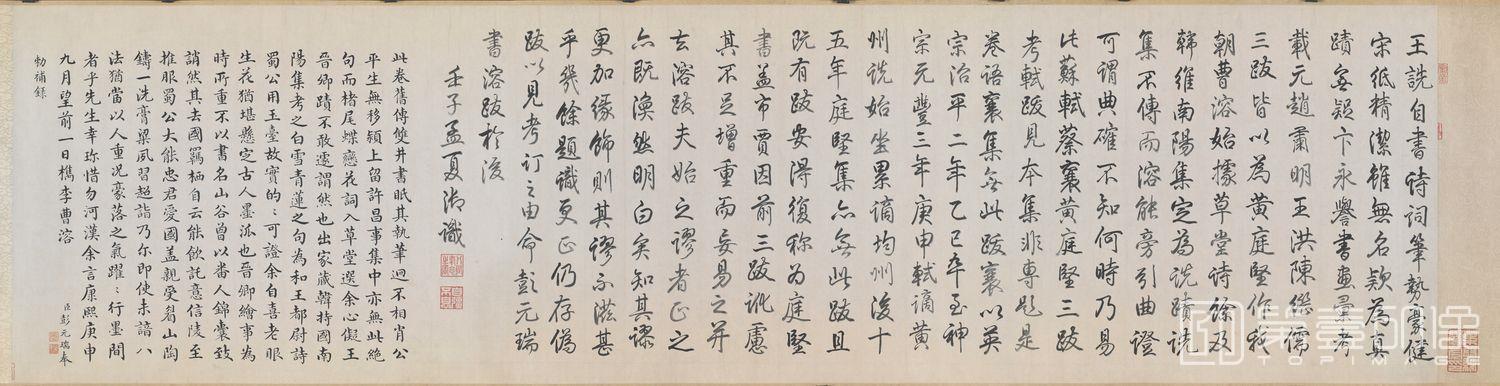 王詵自書詩詞筆勢豪健
宋紙精潔雖無名款為真
蹟無疑卞永譽書畫彙考
載元趙肅明王洪陳繼儒
三跋皆以為黃庭堅作我
朝曹溶始據草堂詩餘及
韓維南陽集定為詵蹟詵
集不傳而溶能旁引曲證
可謂典確不知何時乃易
以蘇軾蔡襄黃庭堅三跋
考軾跋見本集非專題是
卷語襄集無此跋襄以英
宗治平二年乙巳卒至神
宗元豐三年庚申軾謫黃
州詵始坐累謫均州後十
五年庭堅集亦無此跋且
阮有跋安得復稱為庭堅
書蓋市賈因前三跋訛慮
其不足增重而妄易之并
去溶跋夫始之謬者正之
亦既渙然明白矣知其謬
更加緣飾則其謬不滋甚
乎幾餘題識更正仍存偽
跋以見考訂之由命彭元瑞
書溶跋於後
壬子孟夏御識
此卷舊傳雙井書眠其執筆迥不相肖公
平生無移潁上留許昌事集中亦無此絕
句而楮尾蝶戀花詞入草堂選余心儗王
晉卿蹟不敢遽謂然也出家藏韓持國南
陽集考之白雪青蓮之句為和王都尉詩
蜀公用玉臺故實的〻可證余自喜老眼
生花猶堪懸定古人墨派也晉卿繪事為
時所重不以書名山谷曾以番人錦囊致
誚然其去國羈栖自云能飲託意信陵至
推服蜀公大能忠君愛國蓋親受眉山陶
鑄一洗膏粱夙習超詣乃尔即使未諳八
法猶當以人重況豪落之氣躍〻行墨間
者乎先生幸珍惜勿河漢余言康熙庚申
九月望前一日檇李曹溶
臣彭元瑞奉
勅補錄